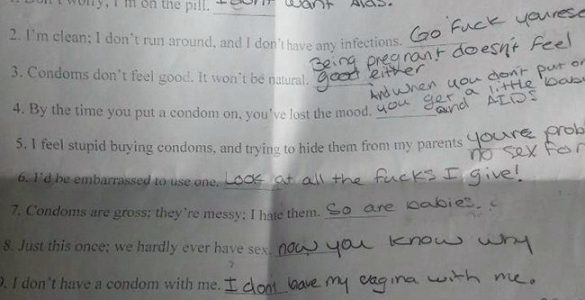 worry, I'm on the pill. I don't want Aids.
2. I'm clean; I don't run around, and I don't have any infections. Go fuck
3. Condoms don't feel good. It won't be natural. Being pregnant doesn't feel
good either
4. By the time you put a condom on, you've lost the mood. And when you don't put
you get a little
and AIDS
5. I feel stupid buying condoms, and trying to hide them from my parents you're
no sex for
6. I'd be embarrassed to use one. Look at all the fucks I give!
7. Condoms are gross; they're messy; I hate them. So are babies.
8. Just this once; we hardly ever have sex. now you know why
9. I don't have a condom with me. I dont have my vagina with me.